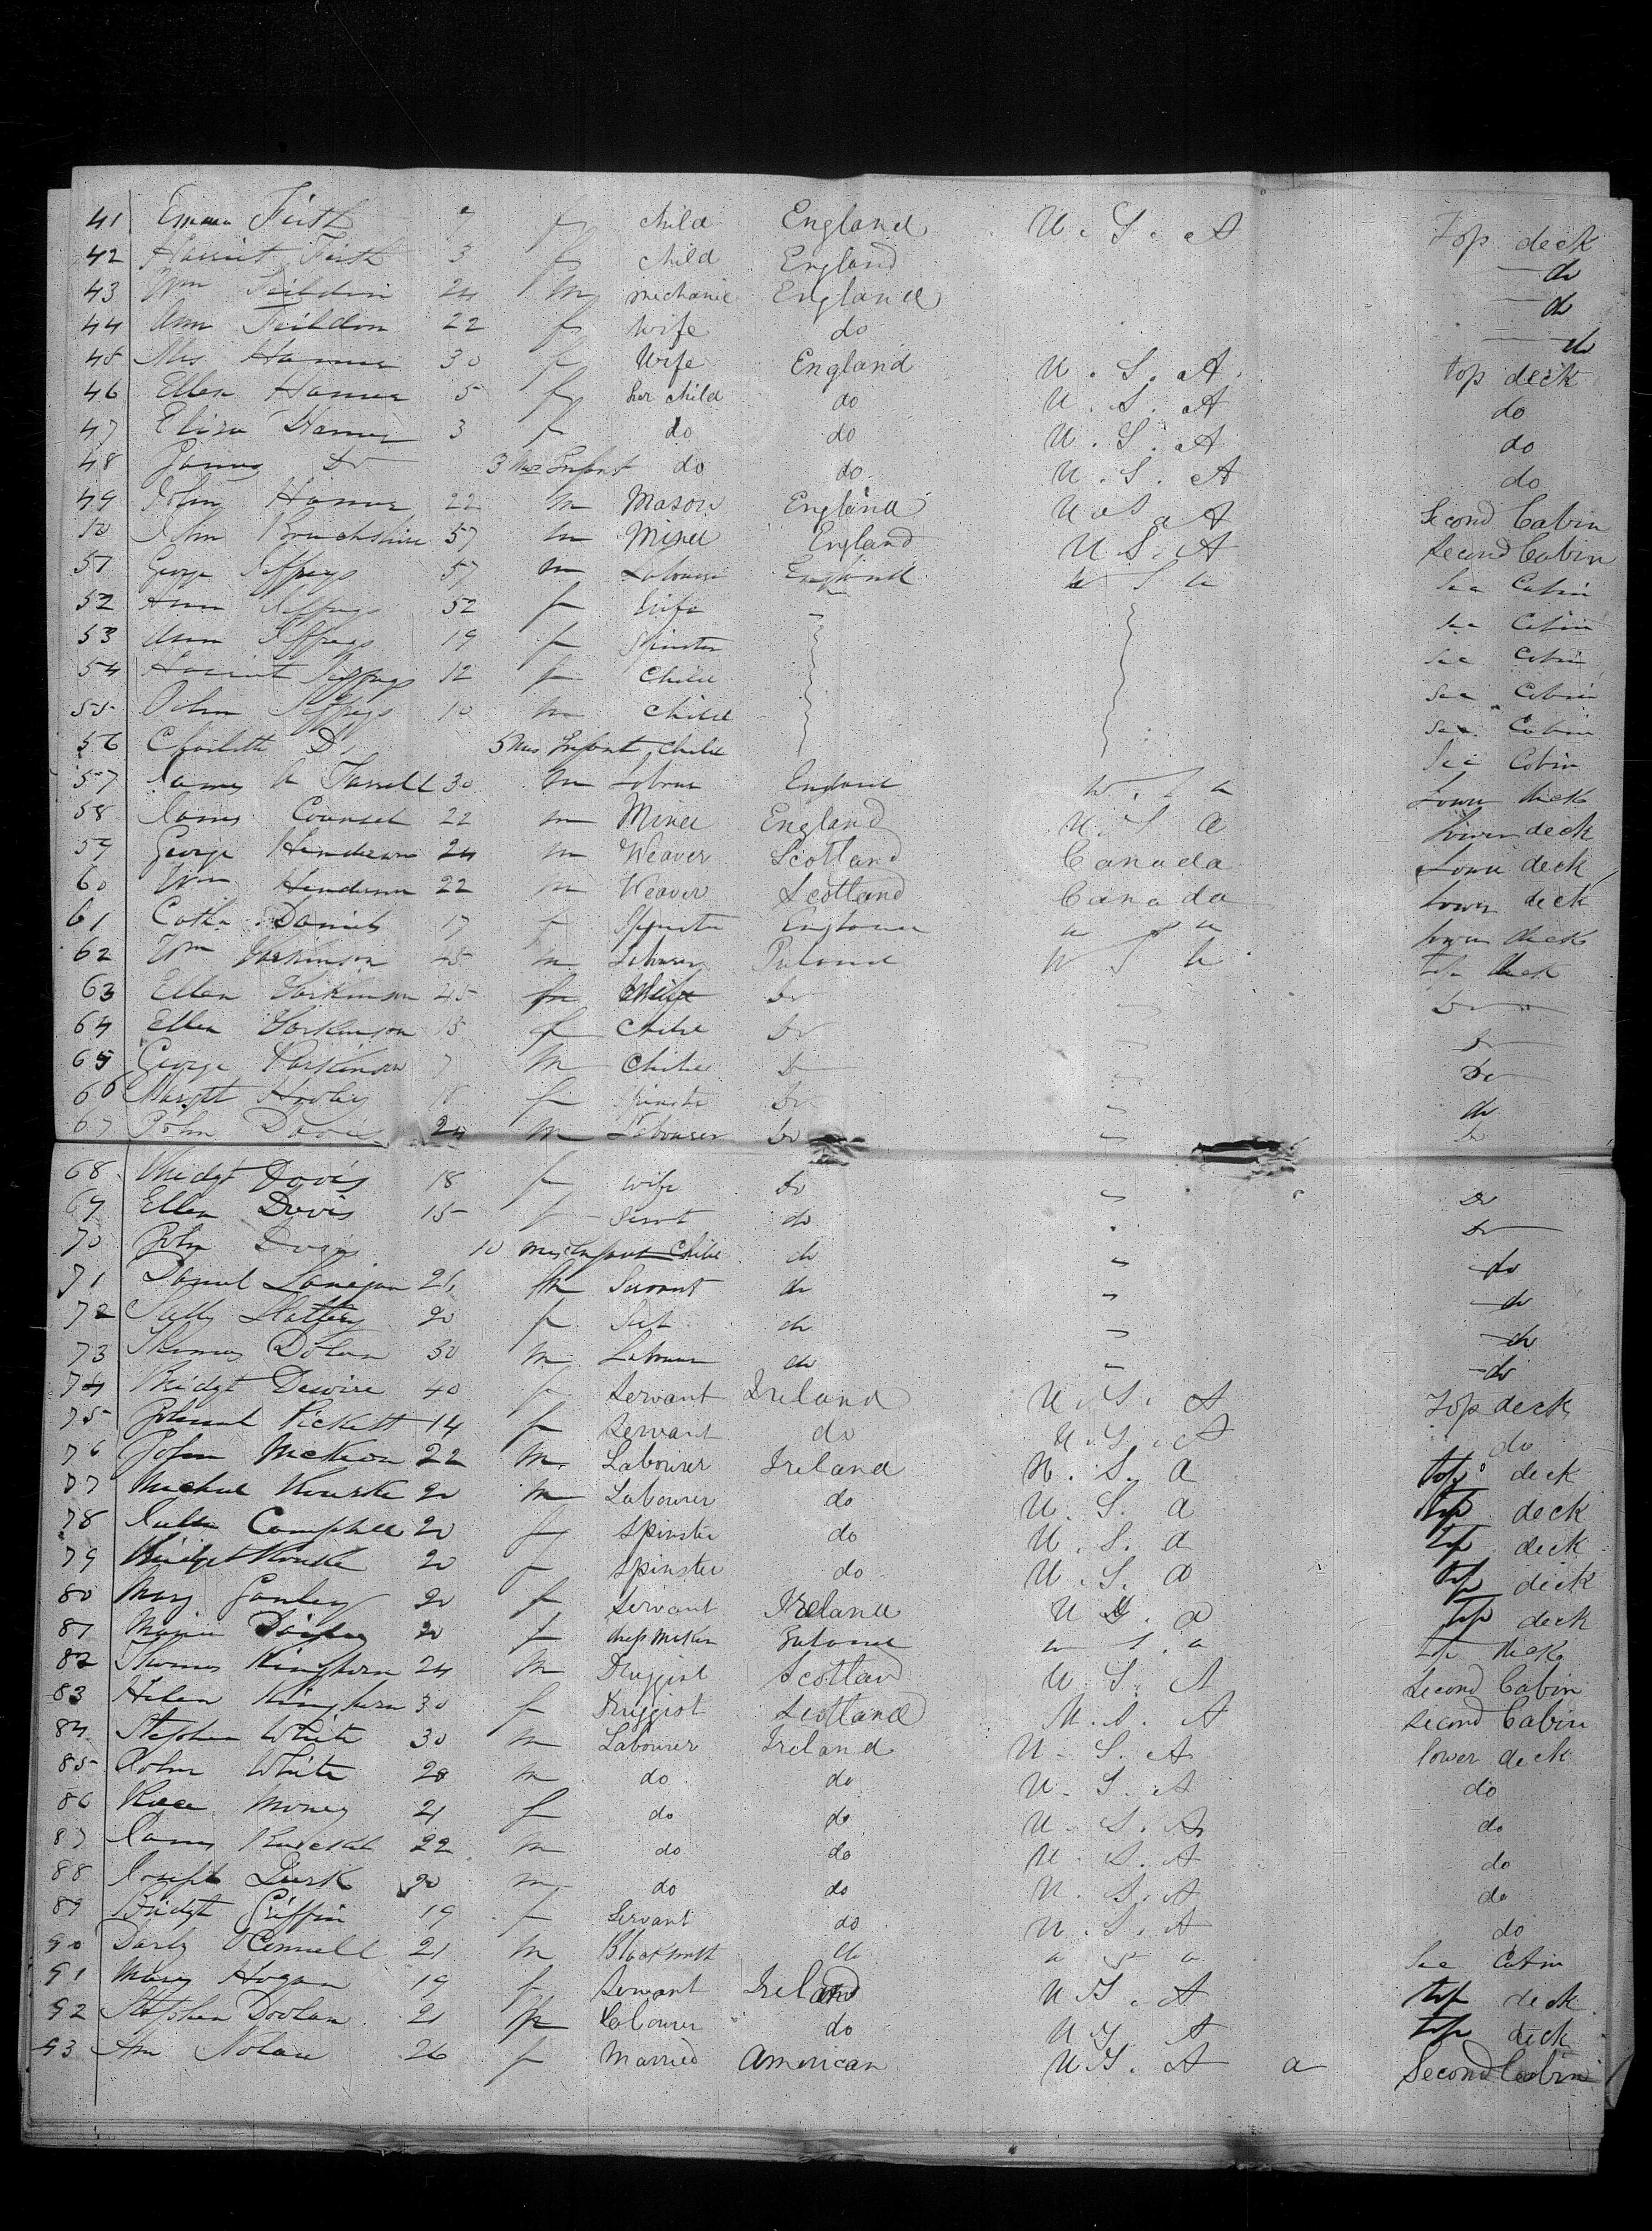 41 Emma Firth 7 f child England U.S.A Top deck
42 Harriet Firth 3 f child England do
43 Wm Feildin 24 m mechanic England do
44 Ann Feildon 22 f wife do do
45 Mrs Hamer 30 f Wife England U.S.A. top deck
46 Ellen Hamer 5 f her child do U.S.A do
47 Eliza Hamer 3 f do do U.S.A do
48 James Do 3 Mos Infant do do U.S.A do
49 John Hamer 22 m Mason England U.S.A Second Cabin
50 John 57 m Miner England U.S.A Second Cabin
51 George Jeffreys 57 m Labourer England U S a Sec Cabin
52 Ann Jeffreys 52 f Wife Sec Cabin
53 Ann Jeffreys 19 f Spinster Sec Cabin
54 Harriet Jeffreys 12 f Child Sec Cabin
55 John Jeffreys 10 m Child Sec Cabin
56 Charlotte Do 5 Mos Infant Child Sec Cabin
57 James 30 m Labourer England U.S a Lower deck
58 James Counsel 22 m Miner England U S a lower deck
59 George Henderson 24 m Weaver Scotland Canada Lower deck
60 Wm Henderson 22 m Weaver Scotland Canada lower deck
61 Cath Daniels 17 f Spinster England u s a lower deck
62 Wm Parkinson 45 m Labourer Ireland U S a top deck
63 Ellen Parkinson 45 f Wife Do " Do
64 Ellen Parkinson 15 f Child Do " Do
65 George Parkinson 7 m Child Do " Do
66 Margtt 18 f Spinster Do " do
67 John Davis 24 m Labourer Do " Do
68 Bridgt Davis 18 f wife Do " Do
69 Ellen Davis 15 f Servt do " Do
70 John Davis 10 mos Infant Child do " do
71 Daniel Lanigan 26 m Servant do " do
72 Sally Slattery 20 f Sert do " do
73 Thomas Dolan 30 m Labourer do " do
74 Bridgt Dewire 40 f Servant Ireland U.S.A Top deck
75 Pickett 14 f Servant do U.S.A do
76 John McKeon 22 m Labourer Ireland U.S.a top deck
77 Michael Rourke 20 m Labourer do U.S.a top deck
78 Julia Campbell 20 f Spinster do U.S.a top deck
79 Bridget Rourke 20 f Spinster do U.S.a top deck
80 Mary Ganley 20 f Servant Ireland U S.a top deck
81 Maria 20 f dress maker Ireland u s.a top deck
82 Thomas Kinghorn 24 m Druggist Scotland U S.A Second Cabin
83 Helen Kinghorn 30 f Druggist Scotland U.S.A Second Cabin
84 Stephen White 30 m Labourer Ireland U.S.A lower deck
85 John White 28 m do do U.S.A do
86 Rose Money 21 f do do U.S.A do
87 James 22 m do do U.S.A do
88 Joseph 20 m do do U.S.A do
89 Bridgt Griffin 19 f Servant do U.S.A do
90 Darby OConnell 21 m Blacksmith do u s a Sec Cabin
91 Mary Hogan 19 f Servant Ireland U S.A top deck
92 Stephen Doolan 21 m Labourer do U S.A top deck
93 Ann Nolan 26 f Married American U S.A a Second Cabin